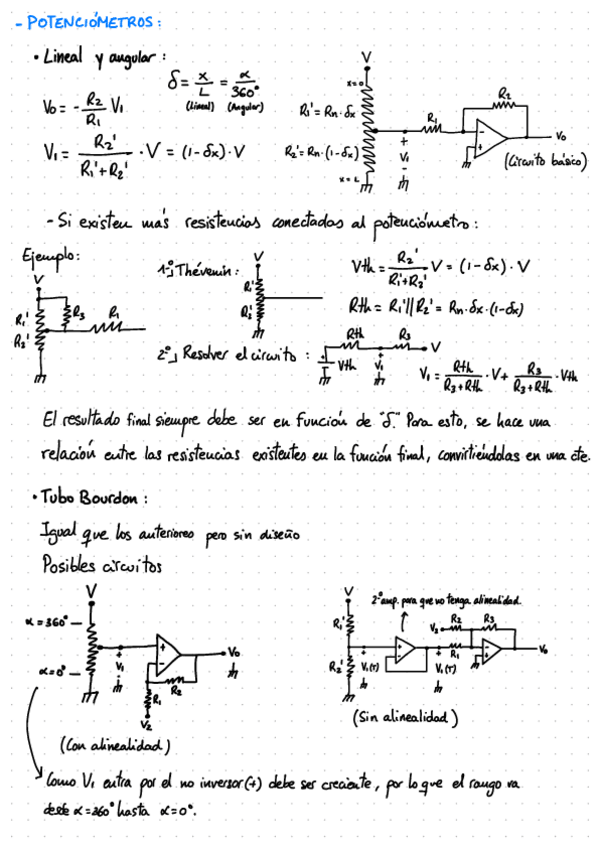 - POTENCIÓMETROS:
• Lineal y angular:
δ = x/L = α/360°
(Lineal) (Angular)
Vo = - R2/R1 V1
V1 = R2'/(R1'+R2') · V = (1-δx)·V
V
x=0
R1'= Rn·δx
R2'= Rn·(1-δx)
x=L
V1
R1
R2
Vo
(Circuito básico)
- Si existen más resistencias conectadas al potenciómetro:
Ejemplo:
V
R1'
R2'
R3
R1
1º⌋ Thévenin:
V
R1'
R2'
Vth = R2'/(R1'+R2') V = (1-δx)·V
Rth = R1'||R2' = Rn·δx·(1-δx)
2º⌋ Resolver el circuito:
Rth
R3
V
Vth
V1
V1 = Rth/(R3+Rth) ·V + R3/(R3+Rth) ·Vth
El resultado final siempre debe ser en función de "δ". Para esto, se hace una
relación entre las resistencias existentes en la función final, convirtiéndolas en una cte.
• Tubo Bourdon:
Igual que los anteriores pero sin diseño
Posibles circuitos
V
α=360°
α=0°
V1
R1
R2
V2
Vo
(Con alinealidad)
V
R1'
R2'
V1(T)
2º amp. para que no tenga alinealidad.
V2
R2
R3
R1
V1(T)
Vo
(Sin alinealidad)
Como V1 entra por el no inversor (+) debe ser creciente, por lo que el rango va
desde α=360° hasta α=0°.